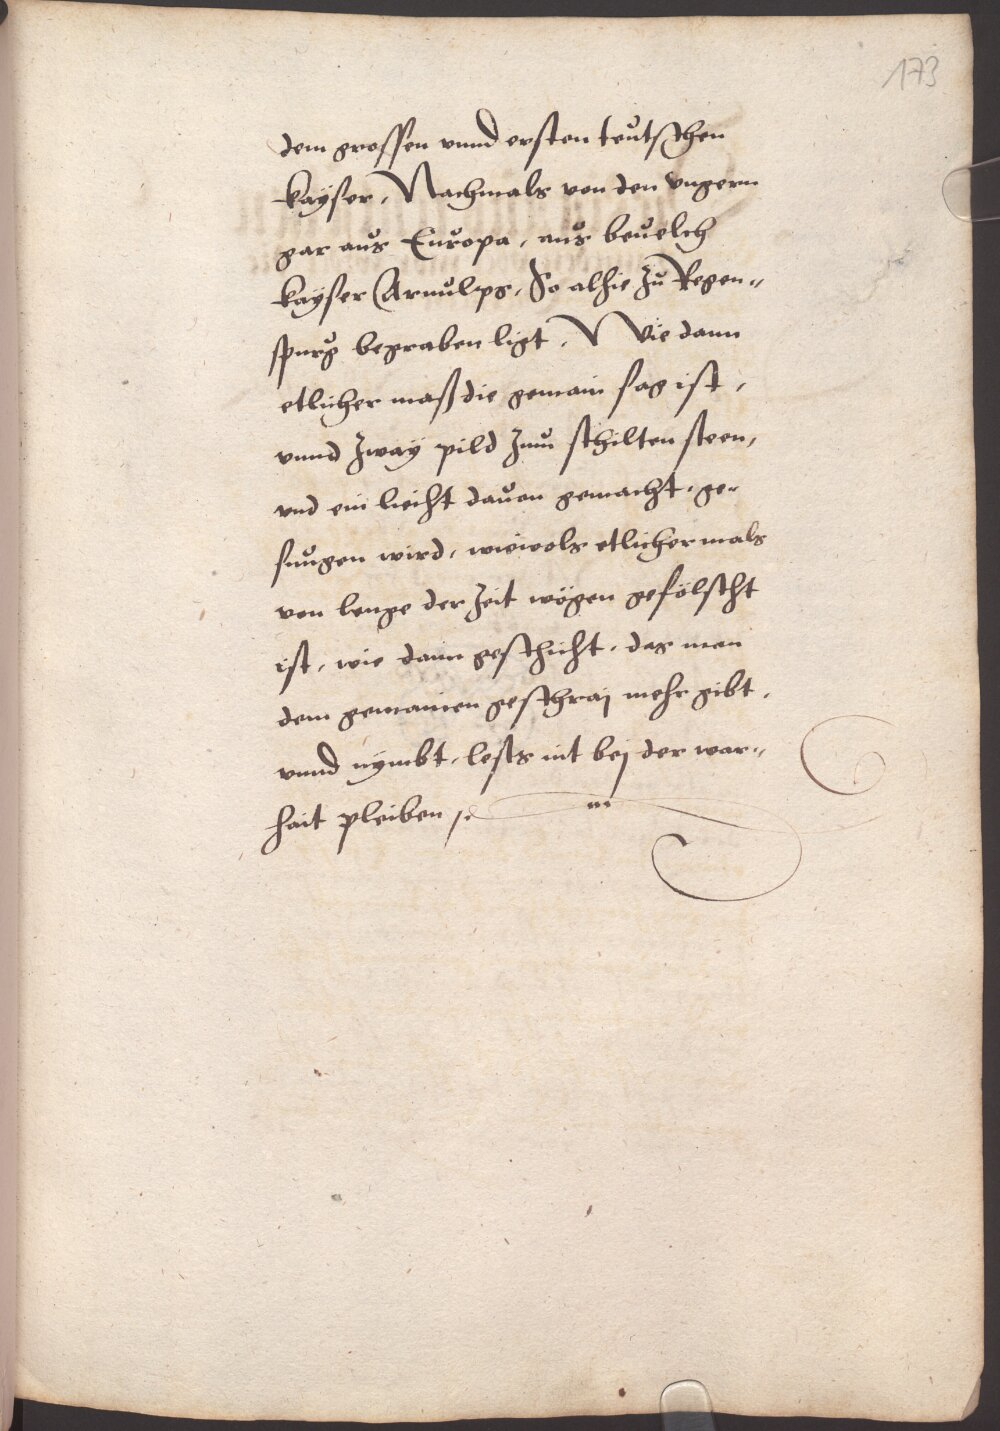 173
dem grossen vnnd ersten teutschen
kayser, Nachmals von den vngern
gar aus Europa, aus beuelch
kayser Arnulps, So alhie zu Regen-
spurg begraben ligt. Wie dann
etlicher maß die gemain sag ist,
vnnd zway pild zum schilten steen,
vnd ein liecht dauon gemacht, ge-
sungen wird, wiewols etlichermals
von lenge der zeit wögen gefölscht
ist, wie dann geschicht, das man
dem gemainen geschraj mehr gibt,
vnnd nymbt, lests nit bej der war-
hait pleiben